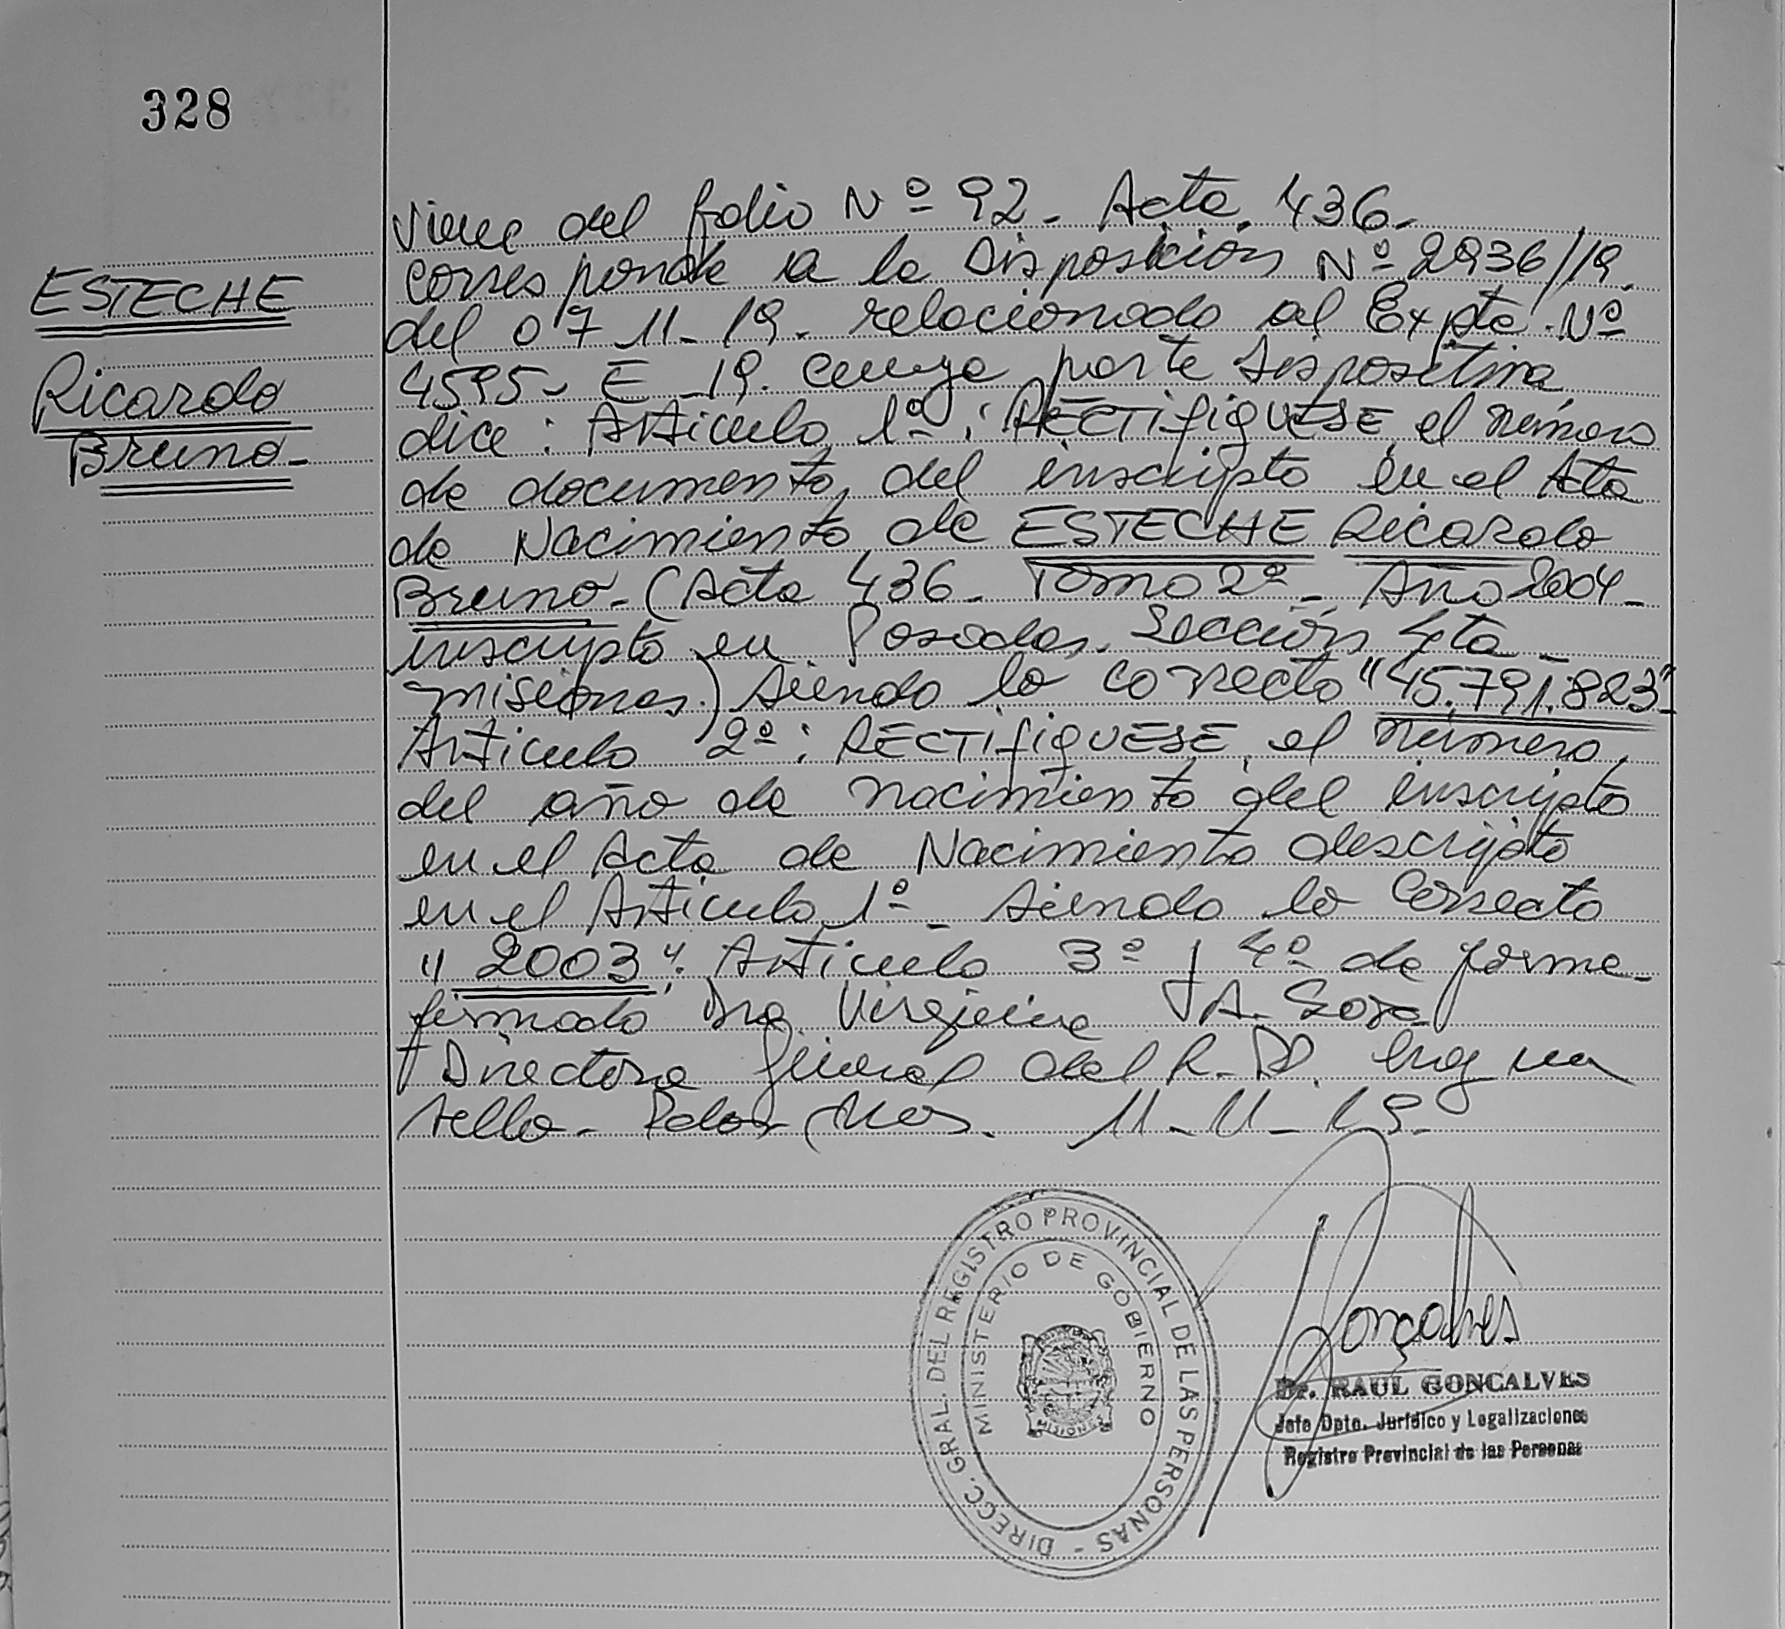 328
ESTECHE
Ricardo
Bruno-
Viene del folio Nº 92- Acta 436-
Corresponde a la Disposición Nº 2936/19.
del 07-11-19. relacionado al Expte Nº
4595- E -19. cuya parte dispositiva
dice: Artículo 1º: RECTIFIQUESE el número
de documento del inscripto en el Acta
de Nacimiento de ESTECHE Ricardo
Bruno- (Acta 436- Tomo 2º- Año 2004-
inscripto en Posadas. Sección 4ta-
misiones.) siendo lo correcto "45.791.823"-
Artículo 2º: RECTIFIQUESE el número
del año de nacimiento del inscripto
en el Acta de Nacimiento descripto
en el Artículo 1º- siendo lo Correcto
"2003". Artículo 3º y 4º de forma-
firmado Dra. Virginia A. Sosa
Directora General del R.P. Hay un
sello- Pdas Mnes. 11-11-19-
DIRECC. GRAL. DEL REGISTRO PROVINCIAL DE LAS PERSONAS -
MINISTERIO DE GOBIERNO
MISIONES
Gonçalves
Dr. RAUL GONCALVES
Jefe Dpto. Jurídico y Legalizaciones
Registro Provincial de las Personas